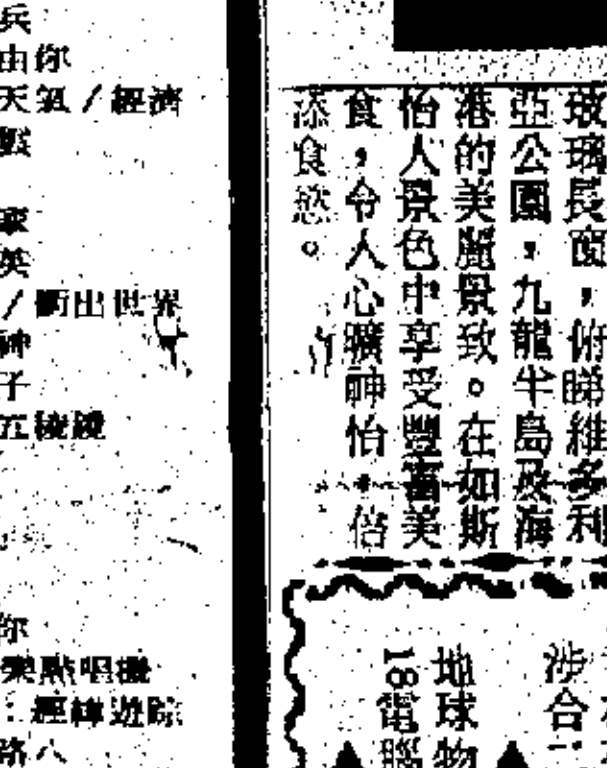 兵
由你
天氣／經濟
戲
家
英
／衝出世界
神
子
五稜鏡
你
樂點唱機
：經緯遊踪
路八
玻璃長窗，俯睇維多利
亞公園，九龍半島及海
港的美麗景致。在如斯
怡人景色中享受豐富美
食，令人心曠神怡，倍
添食慾。
涉合
地球物
18電腦